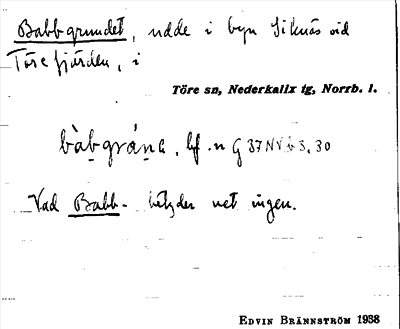 Babbgrundet, udde i byn Siknäs vid
Törefjärden, i
Töre sn, Nederkalix tg, Norrb. l.
bàbgrána, bf. n
Vad Babb- betyder vet ingen.
Edvin Brännström 1938